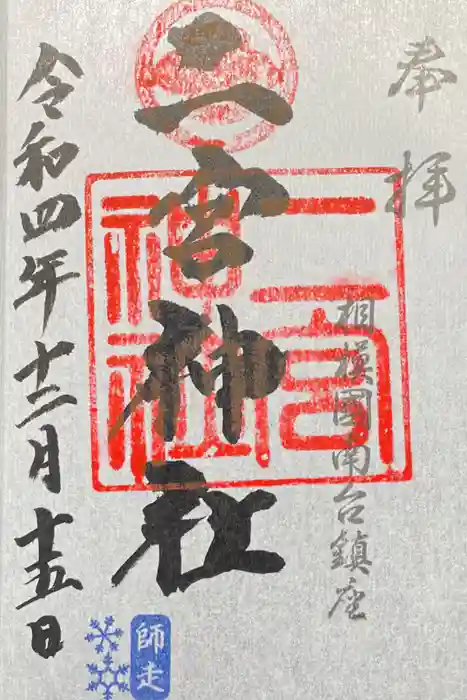 奉拝
相模国南台鎮座
二宮神社
二宮
神社
令和四年十二月十五日
師走